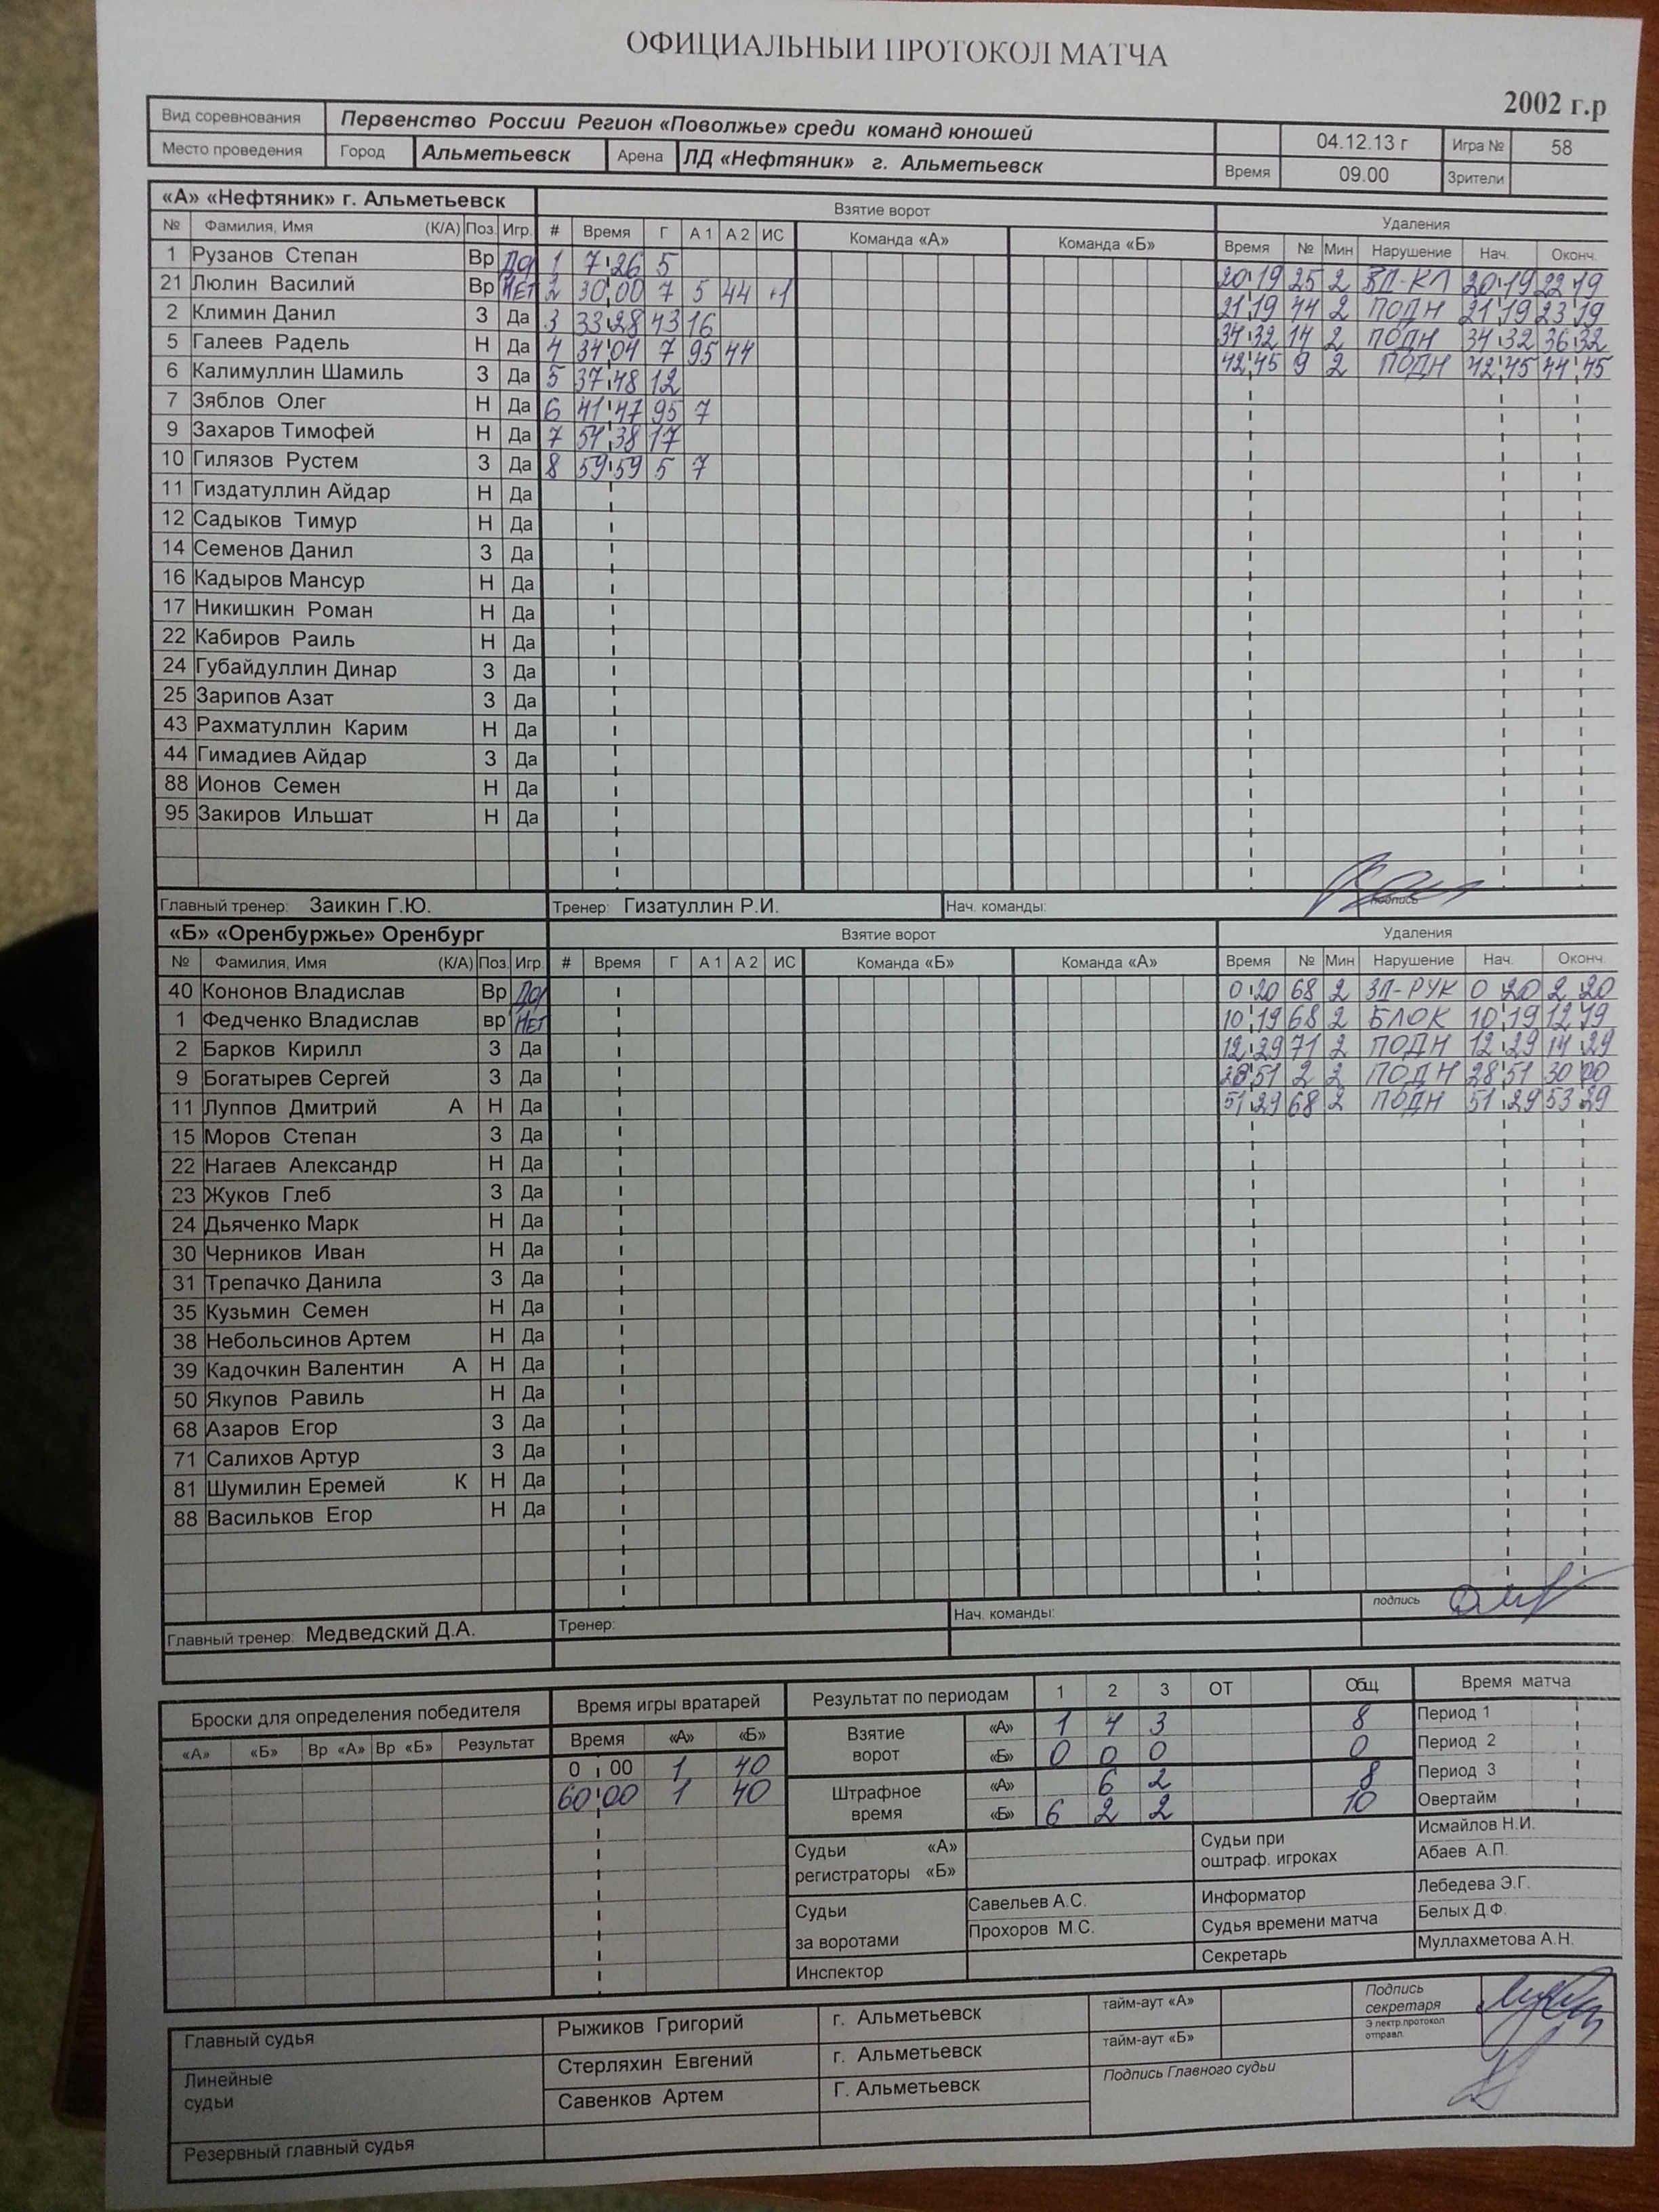 ОФИЦИАЛЬНЫЙ ПРОТОКОЛ МАТЧА
2002 г.р
Вид соревнования Первенство России Регион «Поволжье» среди команд юношей 04.12.13 г Игра № 58
Место проведения Город Альметьевск Арена ЛД «Нефтяник» г. Альметьевск Время 09.00 Зрители
«А» «Нефтяник» г. Альметьевск Взятие ворот Удаления
№ Фамилия, Имя (К/А) Поз. Игр. # Время Г А 1 А 2 ИС Команда «А» Команда «Б» Время № Мин Нарушение Нач. Оконч.
1 Рузанов Степан Вр Да 1 7 26 5 20 19 25 2 ЗД-КЛ 20 19 22 19
21 Люлин Василий Вр Нет 2 30 00 7 5 44 +1 21 19 44 2 ПОДН 21 19 23 19
2 Климин Данил З Да 3 33 28 43 16 34 32 14 2 ПОДН 34 32 36 32
5 Галеев Радель Н Да 4 34 04 7 95 44 42 45 9 2 ПОДН 42 45 44 45
6 Калимуллин Шамиль З Да 5 37 48 12
7 Зяблов Олег Н Да 6 41 47 95 7
9 Захаров Тимофей Н Да 7 54 38 17
10 Гилязов Рустем З Да 8 59 59 5 7
11 Гиздатуллин Айдар Н Да
12 Садыков Тимур Н Да
14 Семенов Данил З Да
16 Кадыров Мансур Н Да
17 Никишкин Роман Н Да
22 Кабиров Раиль Н Да
24 Губайдуллин Динар З Да
25 Зарипов Азат З Да
43 Рахматуллин Карим Н Да
44 Гимадиев Айдар З Да
88 Ионов Семен Н Да
95 Закиров Ильшат Н Да
Главный тренер: Заикин Г.Ю. Тренер: Гизатуллин Р.И. Нач. команды: подпись
«Б» «Оренбуржье» Оренбург Взятие ворот Удаления
№ Фамилия, Имя (К/А) Поз. Игр. # Время Г А 1 А 2 ИС Команда «Б» Команда «А» Время № Мин Нарушение Нач. Оконч.
40 Кононов Владислав Вр Да 0 20 68 2 ЗД-РУК 0 20 2 20
1 Федченко Владислав вр Нет 10 19 68 2 БЛОК 10 19 12 19
2 Барков Кирилл З Да 12 29 71 2 ПОДН 12 29 14 29
9 Богатырев Сергей З Да 28 51 2 2 ПОДН 28 51 30 00
11 Луппов Дмитрий А Н Да 51 29 68 2 ПОДН 51 29 53 29
15 Моров Степан З Да
22 Нагаев Александр Н Да
23 Жуков Глеб З Да
24 Дьяченко Марк Н Да
30 Черников Иван Н Да
31 Трепачко Данила З Да
35 Кузьмин Семен Н Да
38 Небольсинов Артем Н Да
39 Кадочкин Валентин А Н Да
50 Якупов Равиль Н Да
68 Азаров Егор З Да
71 Салихов Артур З Да
81 Шумилин Еремей К Н Да
88 Васильков Егор Н Да
Главный тренер: Медведский Д.А. Тренер: Нач. команды: подпись
Броски для определения победителя Время игры вратарей Результат по периодам 1 2 3 ОТ Общ Время матча
«А» «Б» Вр «А» Вр «Б» Результат Время «А» «Б» Взятие ворот «А» 1 4 3 8 Период 1
0 00 1 40 «Б» 0 0 0 0 Период 2
60 00 1 40 Штрафное время «А» 6 2 8 Период 3
«Б» 6 2 2 10 Овертайм
Судьи регистраторы «А» «Б» Судьи при оштраф. игроках Исмайлов Н.И.
Абаев А.П.
Судьи за воротами Савельев А.С. Информатор Лебедева Э.Г.
Прохоров М.С. Судья времени матча Белых Д.Ф.
Инспектор Секретарь Муллахметова А.Н.
Главный судья Рыжиков Григорий г. Альметьевск тайм-аут «А» Подпись секретаря
Линейные судьи Стерляхин Евгений г. Альметьевск тайм-аут «Б» Э лектр.протокол отправл.
Савенков Артем Г. Альметьевск Подпись Главного судьи
Резервный главный судья